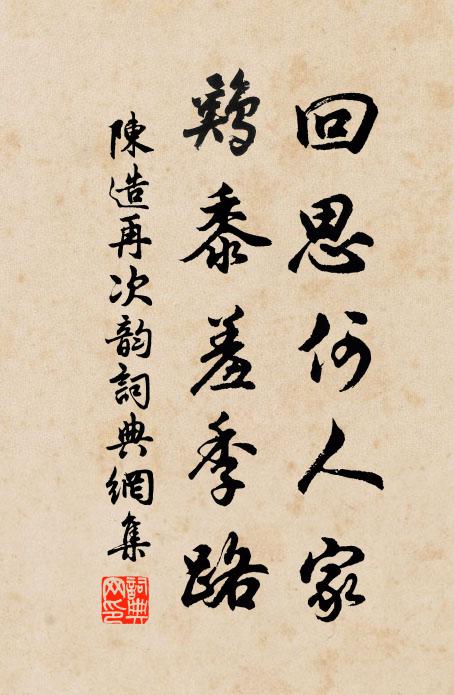 回思何人家
鷄黍羞季路
陳造再次韵詞典網集
詞典网印